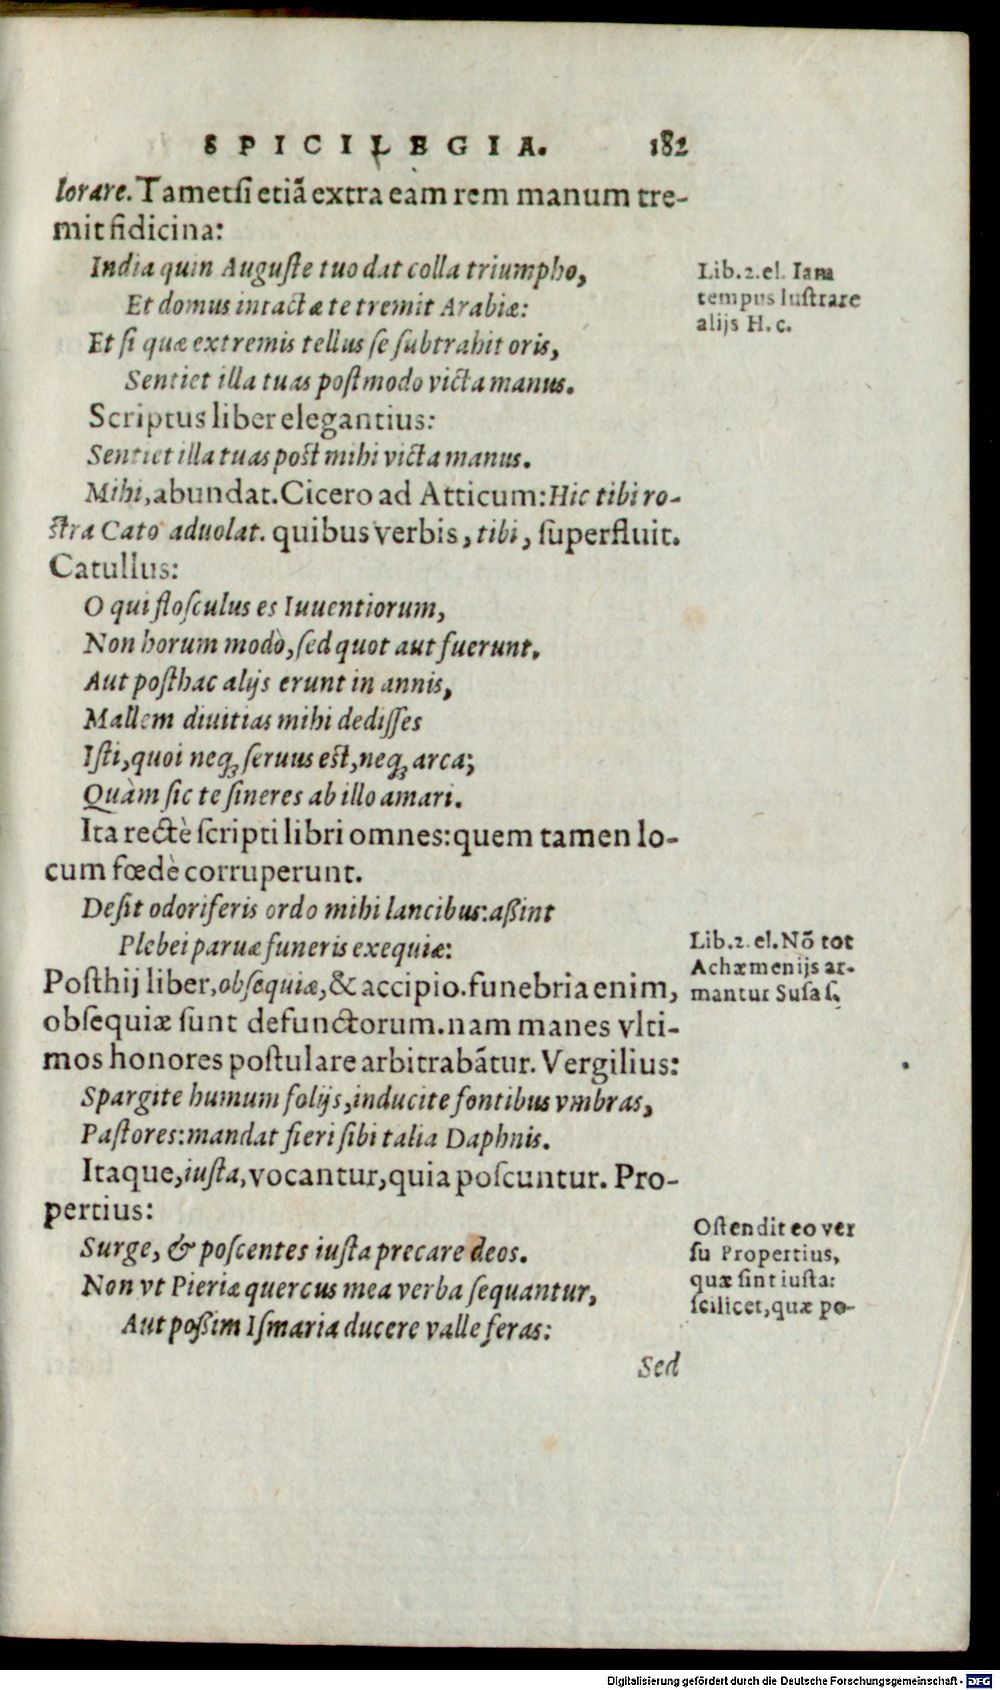 SPICILEGIA. 182
lorare. Tametsi etiã extra eam rem manum tre-
mit fidicina:
India quin Auguſte tuo dat colla triumpho,
Et domus intactæ te tremit Arabiæ:
Et ſi quæ extremis tellus ſe ſubtrahit oris,
Sentiet illa tuas poſtmodo victa manus.
Scriptus liber elegantius:
Sentiet illa tuas poſt mihi victa manus.
Mihi, abundat. Cicero ad Atticum: Hic tibi ro-
ſtra Cato aduolat. quibus verbis, tibi, ſuperfluit.
Catullus:
O qui floſculus es Iuuentiorum,
Non horum modò, ſed quot aut fuerunt,
Aut poſthac alijs erunt in annis,
Mallem diuitias mihi dediſſes
Iſti, quoi neq; ſeruus eſt, neq; arca;
Quàm ſic te ſineres ab illo amari.
Ita rectè ſcripti libri omnes: quem tamen lo-
cum fœdè corruperunt.
Deſit odoriferis ordo mihi lancibus: aßint
Plebei paruæ funeris exequiæ:
Poſthij liber, obſequiæ, & accipio. funebria enim,
obſequiæ ſunt defunctorum. nam manes vlti-
mos honores poſtulare arbitrabãtur. Vergilius:
Spargite humum folijs, inducite fontibus vmbras,
Paſtores: mandat fieri ſibi talia Daphnis.
Itaque, iuſta, vocantur, quia poſcuntur. Pro-
pertius:
Surge, & poſcentes iuſta precare deos.
Non vt Pieriæ quercus mea verba ſequantur,
Aut poßim Iſmaria ducere valle feras:
Sed
Lib. 2. el. Iam
tempus luſtrare
alijs H. c.
Lib. 2. el. Nõ tot
Achæmenijs ar-
mantur Suſa ſ.
Oſtendit eo ver
ſu Propertius,
quæ ſint iuſta:
ſcilicet, quæ po-
Digitalisierung gefördert durch die Deutsche Forschungsgemeinschaft - DFG